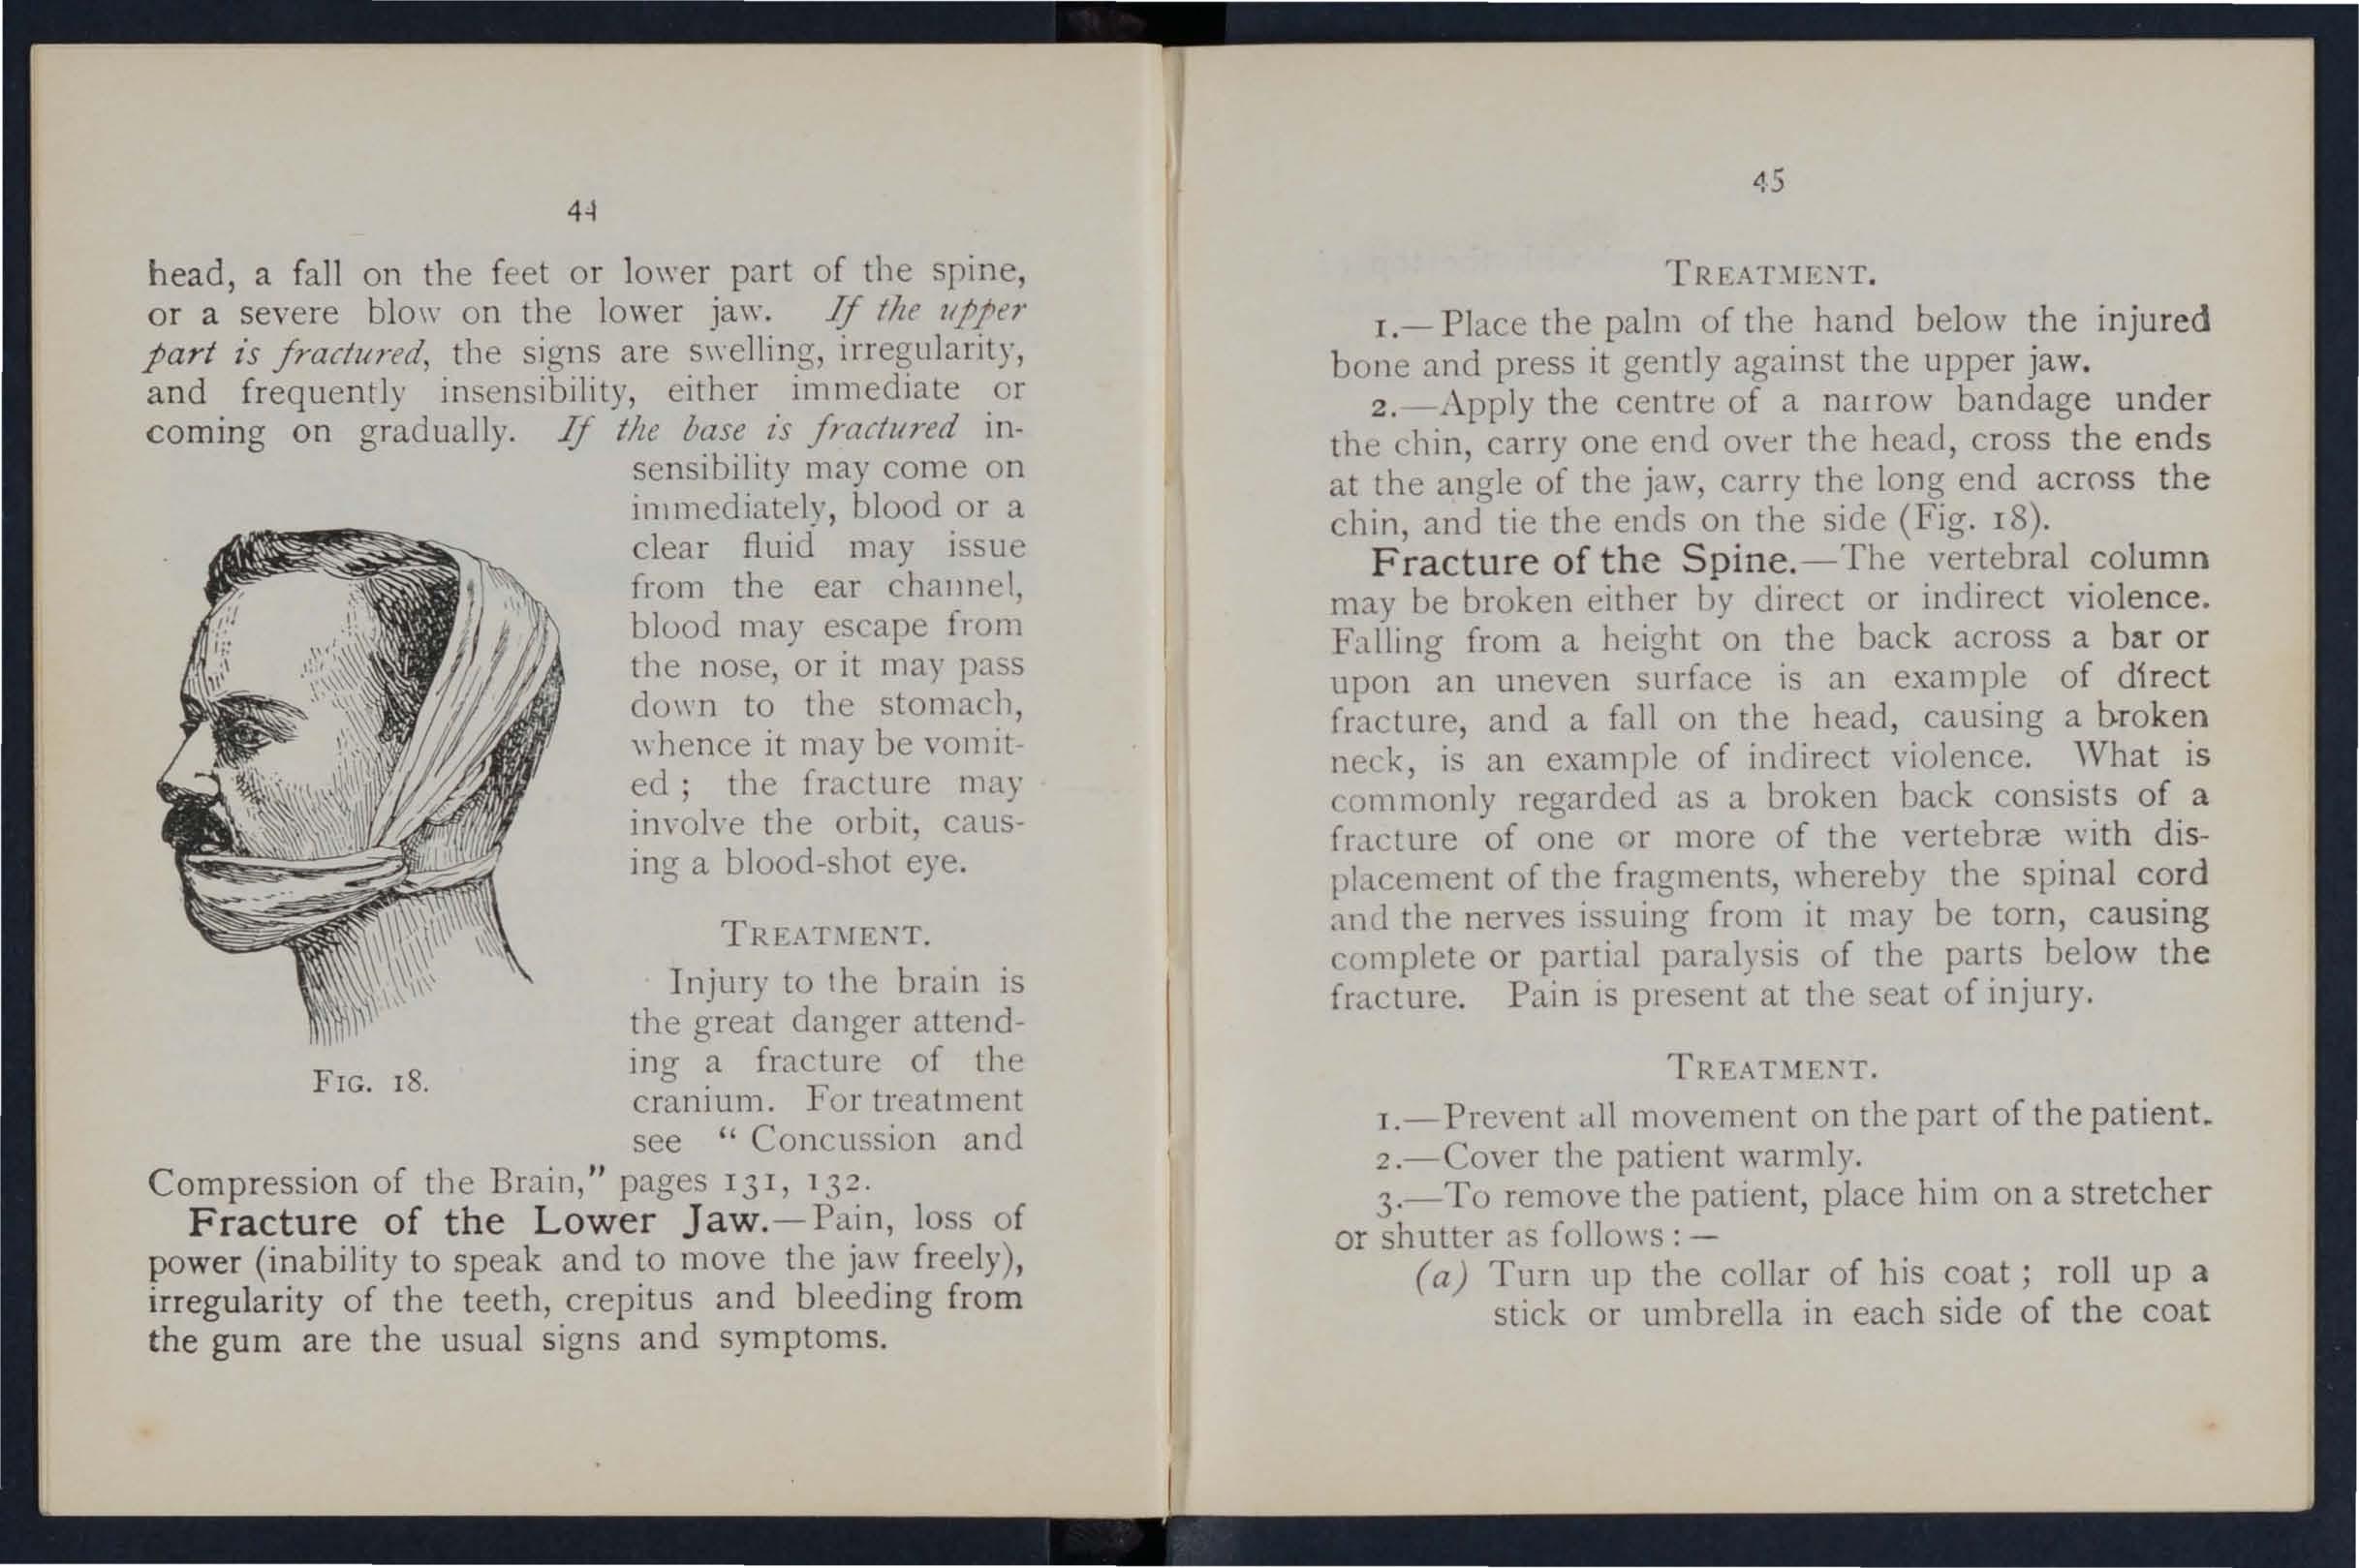 44
head, a fall on the feet or lower part of the spine,
or a severe blow on the lower jaw. If the upper
part is fractured, the signs are swelling, irregularity,
and frequently insensibility, either immediate or
coming on gradually. If the base is fractured in-
sensibility may come on
immediately, blood or a
clear fluid may issue
from the ear channel,
blood may escape from
the nose, or it may pass
down to the stomach,
whence it may be vomit-
ed ; the fracture may
involve the orbit, caus-
ing a blood-shot eye.
TREATMENT.
Injury to the brain is
the great danger attend-
ing a fracture of the
cranium. For treatment
see “ Concussion and
FIG. 18.
Compression of the Brain,” pages 131, 132.
Fracture of the Lower Jaw.—Pain, loss of
power (inability to speak and to move the jaw freely),
irregularity of the teeth, crepitus and bleeding from
the gum are the usual signs and symptoms.
45
TREATMENT.
1.—Place the palm of the hand below the injured
bone and press it gently against the upper jaw.
2.—Apply the centre of a narrow bandage under
the chin, carry one end over the head, cross the ends
at the angle of the jaw, carry the long end across the
chin, and tie the ends on the side (Fig. 18).
Fracture of the Spine.—The vertebral column
may be broken either by direct or indirect violence.
Falling from a height on the back across a bar or
upon an uneven surface is an example of direct
fracture, and a fall on the head, causing a broken
neck, is an example of indirect violence. What is
commonly regarded as a broken back consists of a
fracture of one or more of the vertebræ with dis-
placement of the fragments, whereby the spinal cord
and the nerves issuing from it may be torn, causing
complete or partial paralysis of the parts below the
fracture. Pain is present at the seat of injury.
TREATMENT.
1.—Prevent all movement on the part of the patient.
2.—Cover the patient warmly.
3.—To remove the patient, place him on a stretcher
or shutter as follows : —
(a) Turn up the collar of his coat ; roll up a
stick or umbrella in each side of the coat